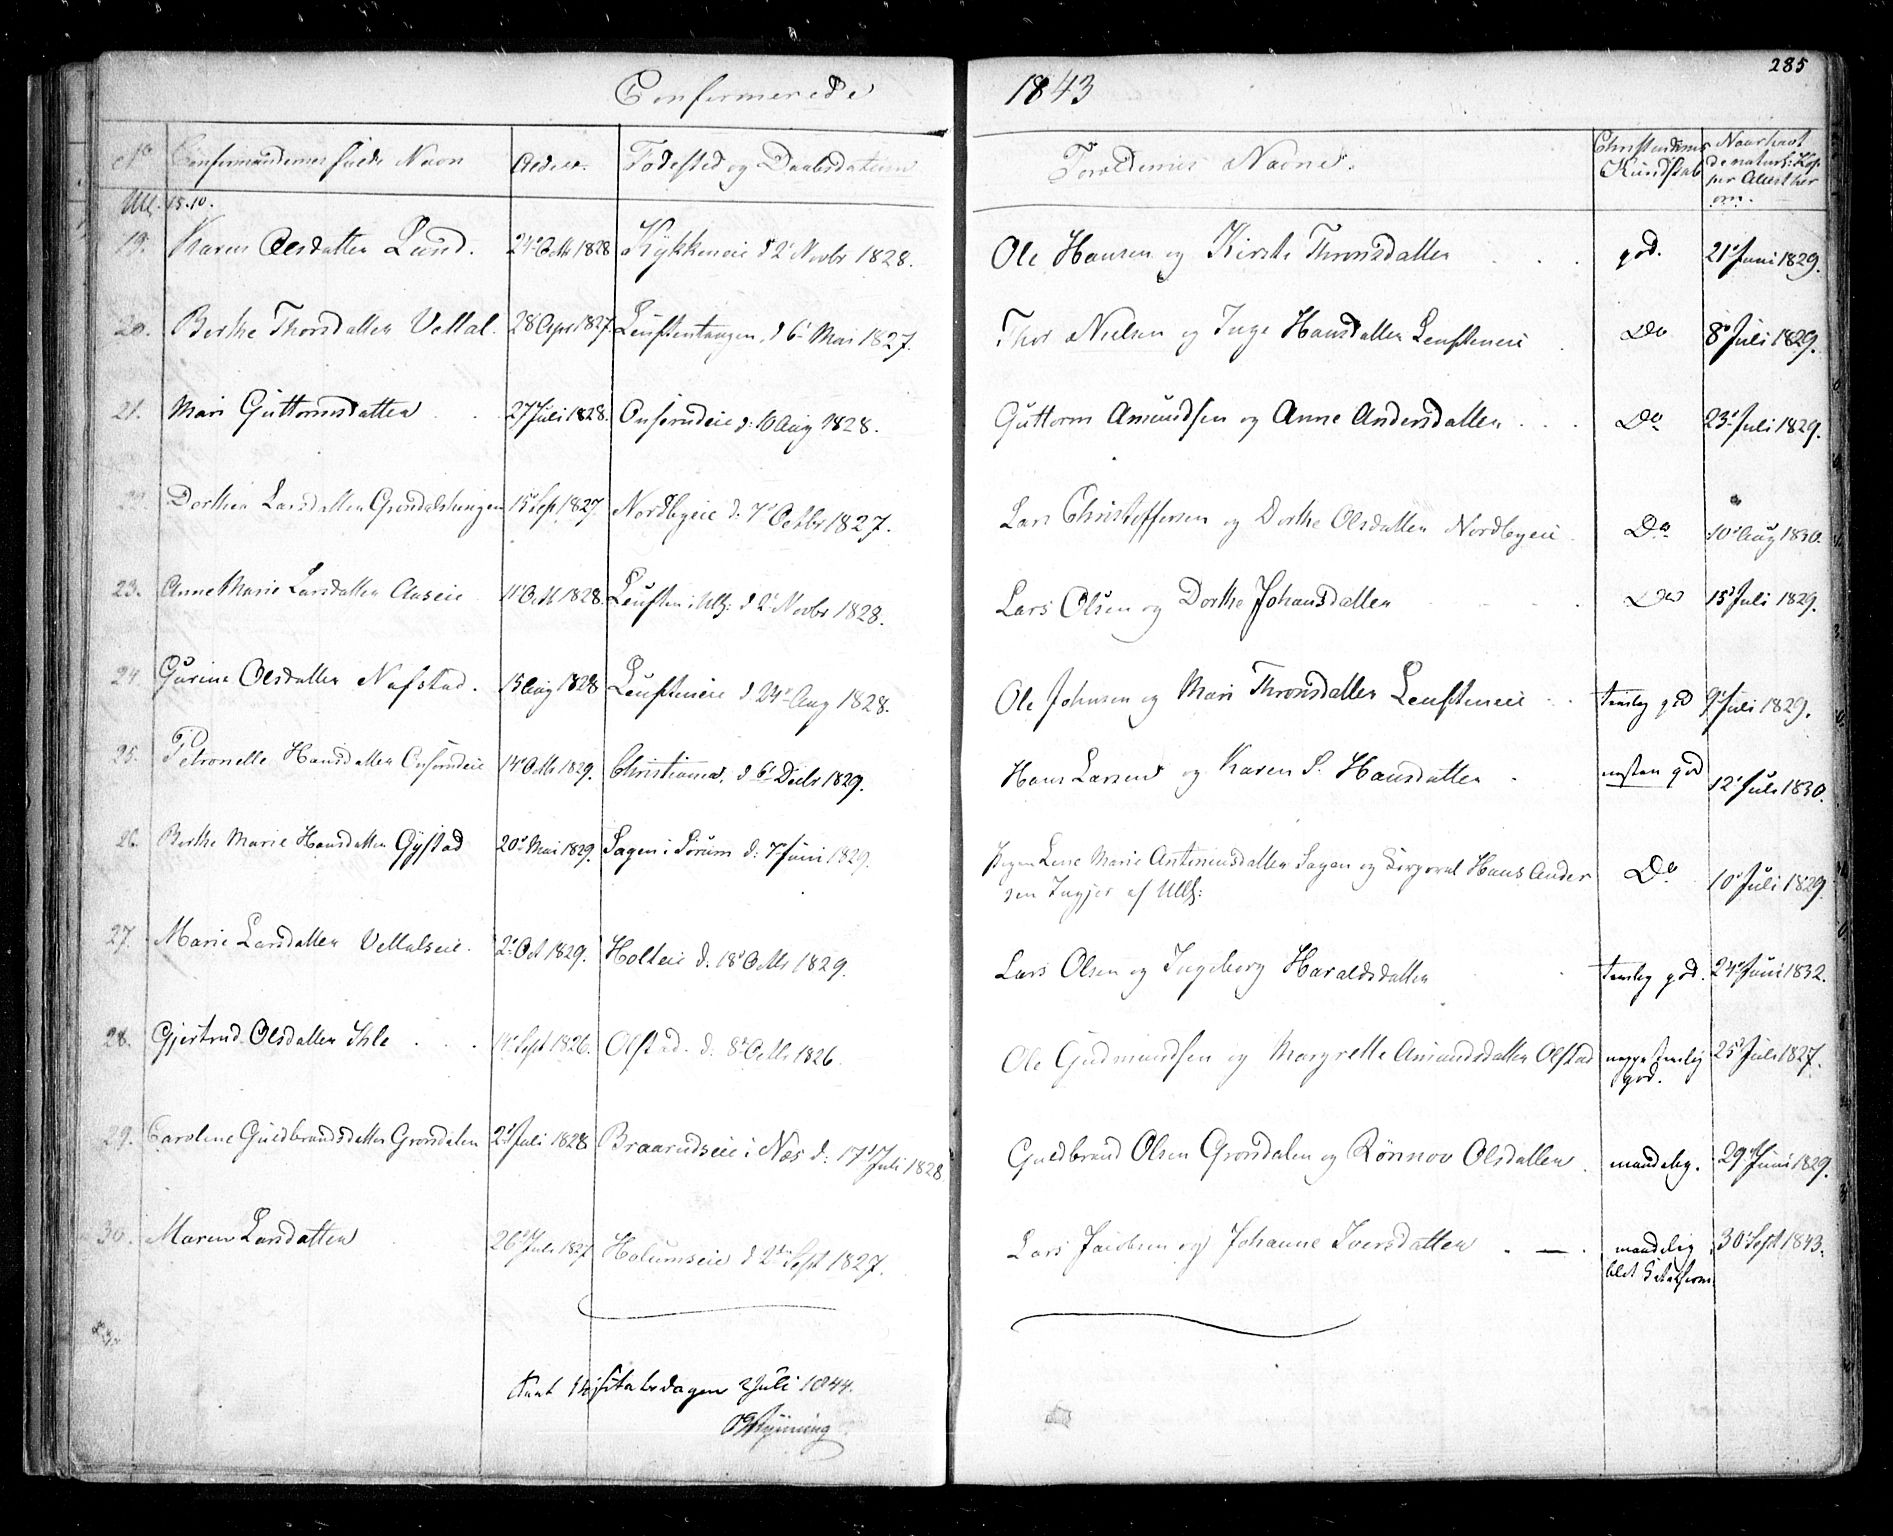 285
Confirmerede 1843
No Confirmandernes fulde Navn Alder. Fødested og Daabsdatum Forældrenes Navne. Christendoms Kundskab Naar havt de naturl: Kopper
Ull. 15.10.
19. Karen Olsdatter Lund. 24 Octb 1828 Kykkeneie d 2 Novbr 1828. Ole Hansen og Kirsti Thronsdatter god. 21 Juni 1829.
20. Berthe Thorsdatter Vettal. 28 Apr 1827. d 6 Mai 1827. Thor Nielsen og Inge Hansdatter Do 8 Juli 1829.
21. Mari Guttormsdatter 27 Juli 1828. d: 10 Aug 1828. Guttorm Amundsen og Anne Andersdatter Do 23 Juli 1829.
22. Dorthea Larsdatter 15 Sep 1827. Nordbyeie d. 7 Octbr 1827. Lars Christoffersen og Dorthe Olsdatter Nordbyeie Do 10 Aug 1830.
23. Anne Marie Larsdatter Aaseie 11 Octb 1828. d 2 Novbr 1828. Lars Olsen og Dorthe Johansdatter Do 15 Juli 1829.
24. Gurine Olsdatter Nafstad. 15 Aug 1828 d 24 Aug 1828. Ole Johnsen og Mari Thronsdatter temlig god 9 Juli 1829.
25. Petronelle Hansdatter 14 Octb 1829. Christiania, d 6 Decbr 1829. Hans Larsen og Karen S. Hansdatter næsten god 12 Juli 1830.
26. Berthe Marie Hansdatter Gystad 20 Mai 1829. Sagen i Sørum d: 7 Juni 1829. Pigen Lene Marie Antoniusdatter Sagen og Corporal Hans Ander
sen af Ulls: Do 10 Juli 1829.
27. Marie Larsdatter Vettalseie. 2 Oct 1829. Holteie d. 18 Octb 1829. Lars Olsen og Ingeborg Haraldsdatter temlig god. 24 Juni 1832.
28. Gjertrud Olsdatter Ihle 14 Sept 1826. Olstad d. 8 Octb 1826. Ole Gudmundsen og Margrethe Amundsdatter Olstad neppe temlig god. 25 Juli 1827.
29. Caroline Guldbrandsdatter Grønsdalen 2 Juli 1828 Braarudseie i Næs d: 17 Juli 1828 Guldbrand Olsen Grønsdalen og Rønnov Olsdatter maadelig. 29 Juni 1829.
30. Maren Larsdatter 26 Juli 1827 Holumseie d 2den Sept 1827. Lars Jacobsen og Johanne Iversdatter maadelig 30 Sept 1843.
2 Juli 1844.